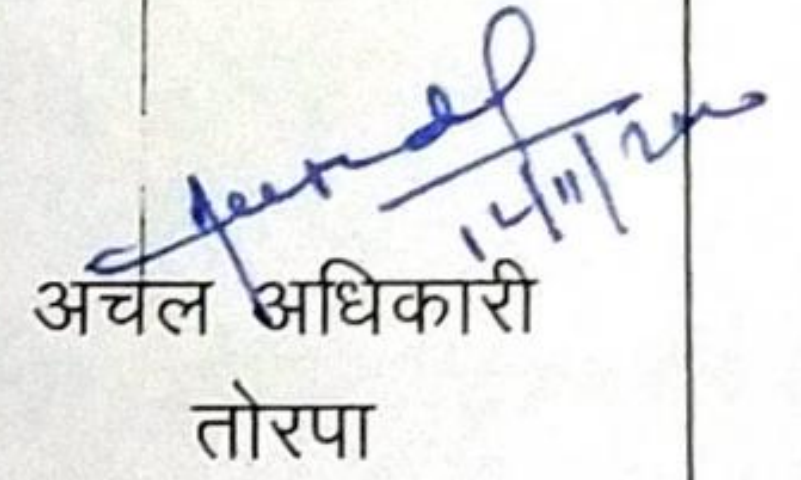 14/11/2000
अचंल अधिकारी
तोरपा